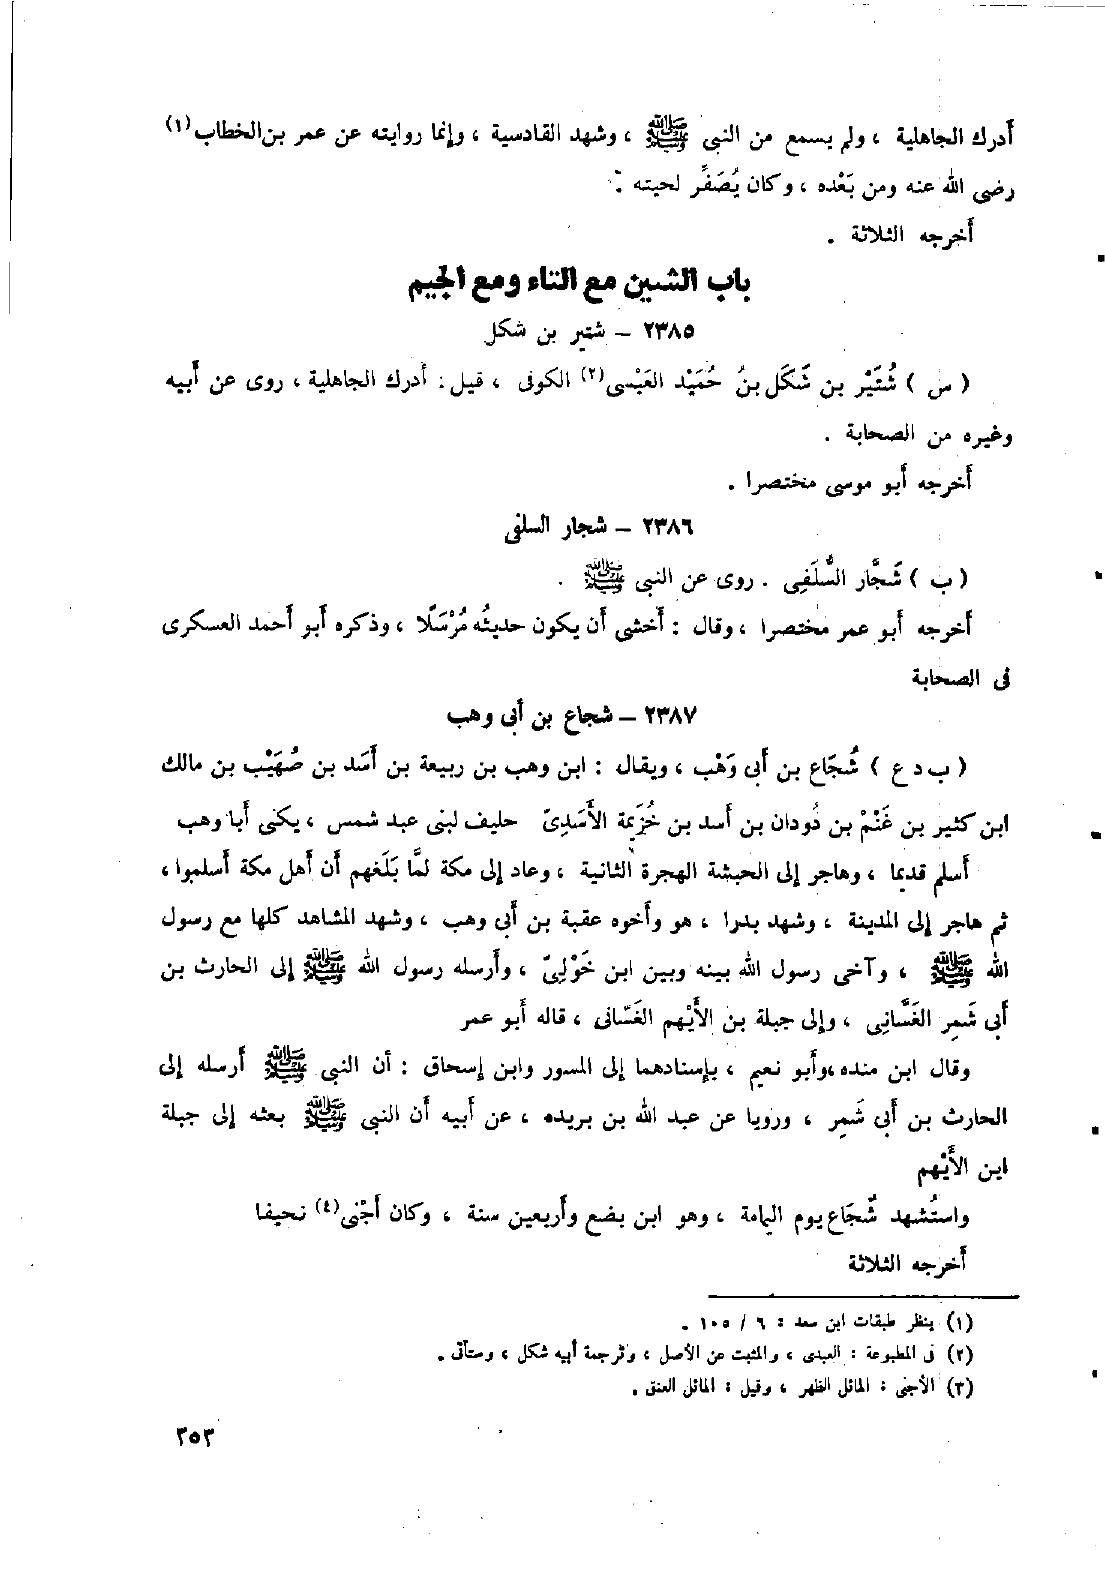 أدرك الجاهلية ، ولم يسمع من النبى ﷺ ، وشهد القادسية ، وإنما روايته عن عمر بن الخطاب (١)
رضى الله عنه ومن بَعْده ، وكان يُصَفِّر لحيته .
أخرجه الثلاثة .
باب الشين مع التاء ومع الجيم
٢٣٨٥ – شتير بن شكل
( س ) شُتَيْر بن شَكَل بنُ حُمَيْد العَبْسى (٢) الكوفى ، قيل : أدرك الجاهلية ، روى عن أبيه
وغيره من الصحابة .
أخرجه أبو موسى مختصرا .
٢٣٨٦ – شجار السلفى
( ب ) شَجَّار السُّلَفِى . روى عن النبى ﷺ .
أخرجه أبو عمر مختصرا ، وقال : أخشى أن يكون حديثُه مُرْسَلًا ، وذكره أبو أحمد العسكرى
فى الصحابة
٢٣٨٧ – شجاع بن أبى وهب
( ب د ع ) شُجَاع بن أبى وَهْب ، ويقال : ابن وهب بن ربيعة بن أَسَد بن صُهَيْب بن مالك
ابن كثير بن غَنْمْ بن دُودان بن أسد بن خُزَيمة الأَسَدِىّ حليف لبنى عبد شمس ، يكنى أبا وهب
أسلم قديما ، وهاجر إلى الحبشة الهجرة الثانية ، وعاد إلى مكة لمَّا بَلَغهم أن أهل مكة أسلموا ،
ثم هاجر إلى المدينة ، وشهد بدرا ، هو وأخوه عقبة بن أبى وهب ، وشهد المشاهد كلها مع رسول
الله ﷺ ، وآخى رسول الله بينه وبين ابن خَوْلِىّ ، وأرسله رسول الله ﷺ إلى الحارث بن
أبى شَمِر الغَسَّانِى ، وإلى جبلة بن الأَيْهم الغَسَّانى ، قاله أبو عمر
وقال ابن منده ، وأبو نعيم ، بإسنادهما إلى المسور وابن إسحاق : أن النبى ﷺ أرسله إلى
الحارث بن أبى شَمِر ، ورويا عن عبد الله بن بريده ، عن أبيه أن النبى ﷺ بعثه إلى جبلة
ابن الأَيْهم
واستُشهد شُجَاع يوم اليمامة ، وهو ابن بضع وأربعين سنة ، وكان أَجْنى (٤) نحيفا
أخرجه الثلاثة
(١) ينظر طبقات ابن سعد : ٦ / ١٠٥ .
(٢) فى المطبوعة : العبدى ، والمثبت عن الأصل ، وترجمة أبيه شكل ، وستأتى .
(٣) الأجنى : المائل الظهر ، وقيل : المائل العنق .
٣٥٣